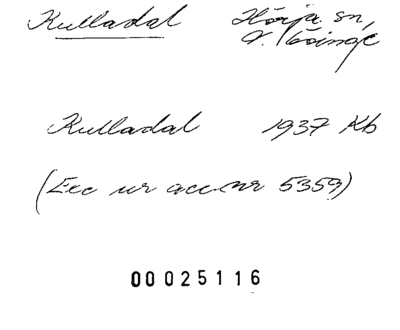 Kulladal Hörja sn,
V. Göinge
Kulladal 1937 Kb
(Exc ur acc.nr 5359)
00025116